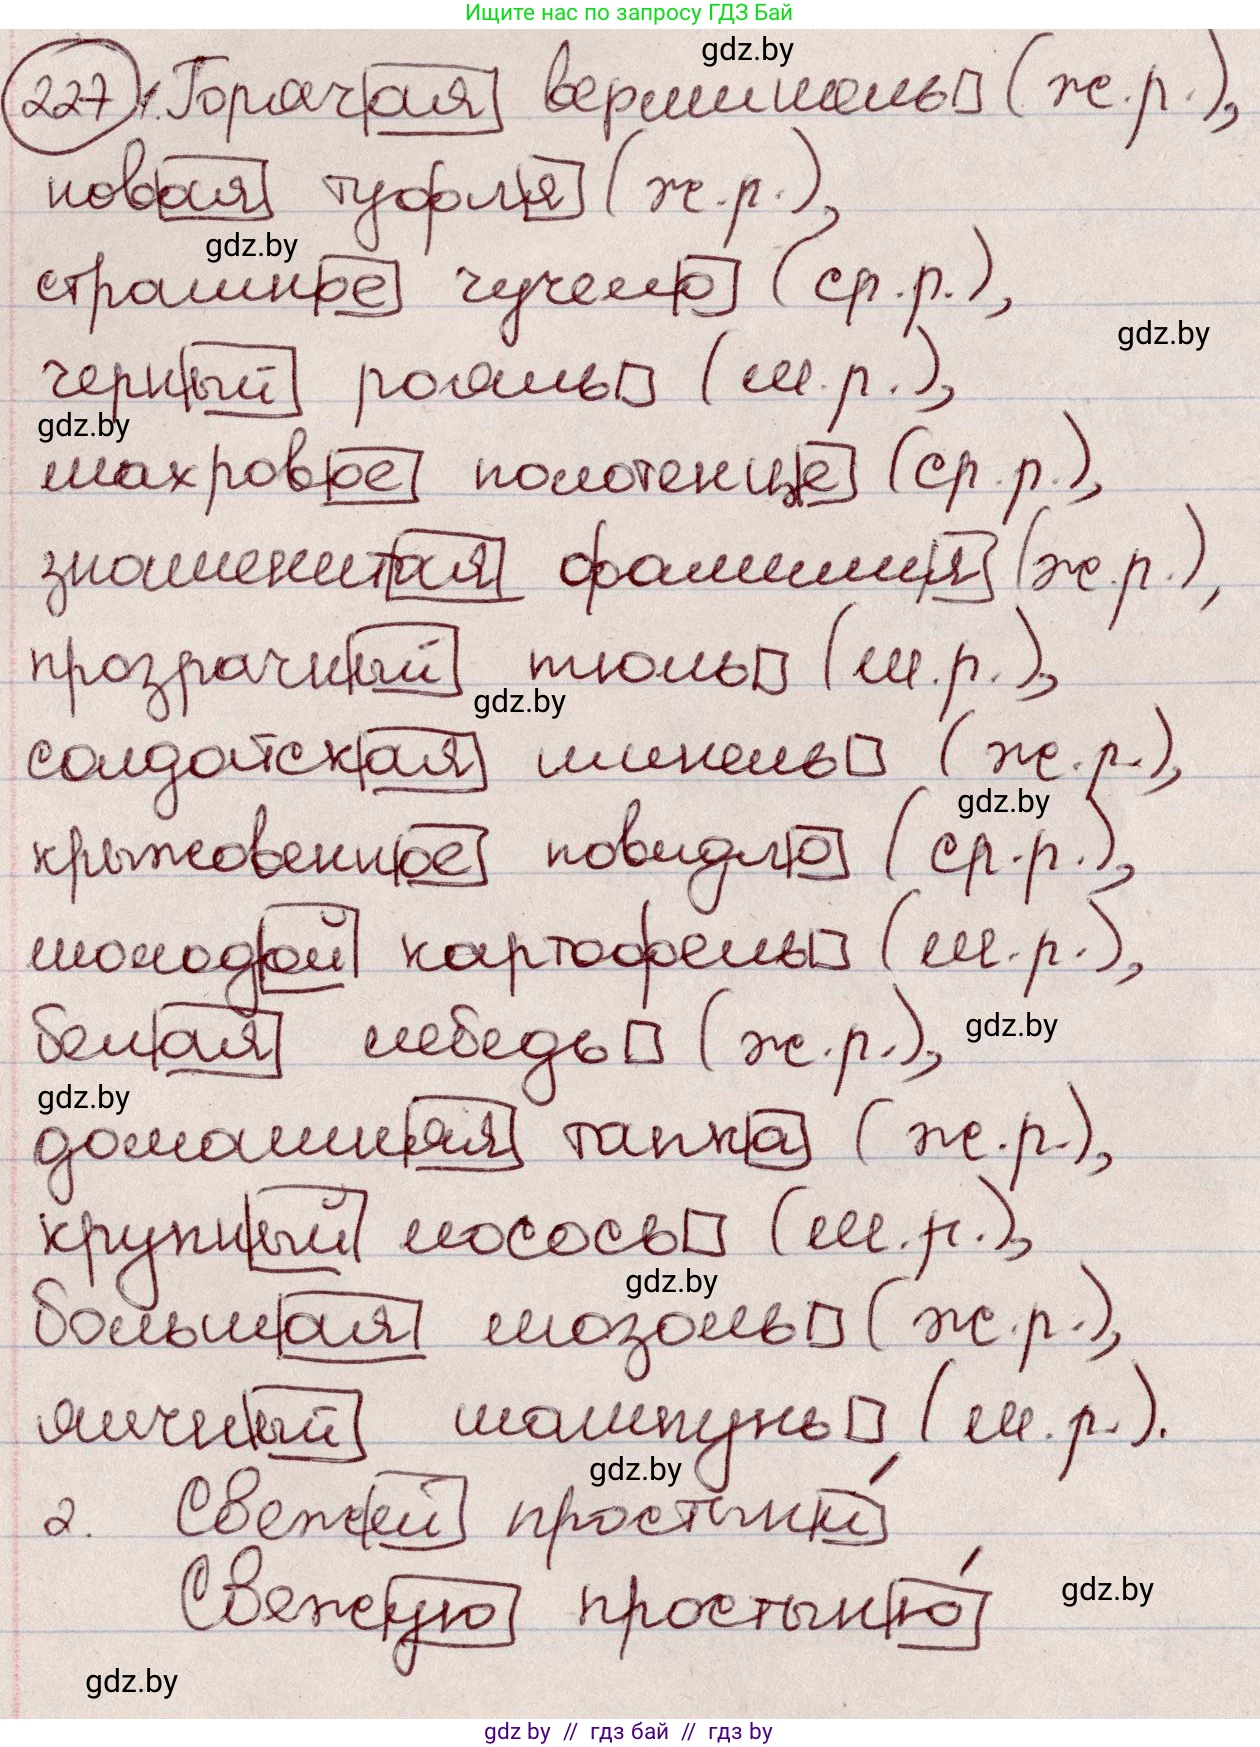 Ищите нас по запросу ГДЗ Бай
gdz.by
227 1. Горячая вермишель (ж.р.),
новая туфля (ж.р.),
gdz.by
страшное чучело (ср.р.),
gdz.by
черный рояль (м.р.),
gdz.by
махровое полотенце (ср.р.),
знаменитая фамилия (ж.р.),
прозрачный тюль (м.р.),
gdz.by
солдатская шинель (ж.р.),
gdz.by
крыжовенное повидло (ср.р.),
молодой картофель (м.р.),
белая лебедь (ж.р.),
gdz.by
gdz.by
домашняя тапка (ж.р.),
крупный лосось (м.р.),
gdz.by
большая мозоль (ж.р.),
яичный шампунь (м.р.).
gdz.by
2. Свежей простыни́
Свежую простыню́
gdz.by
gdz.by
gdz by // гдз бай // гдз by